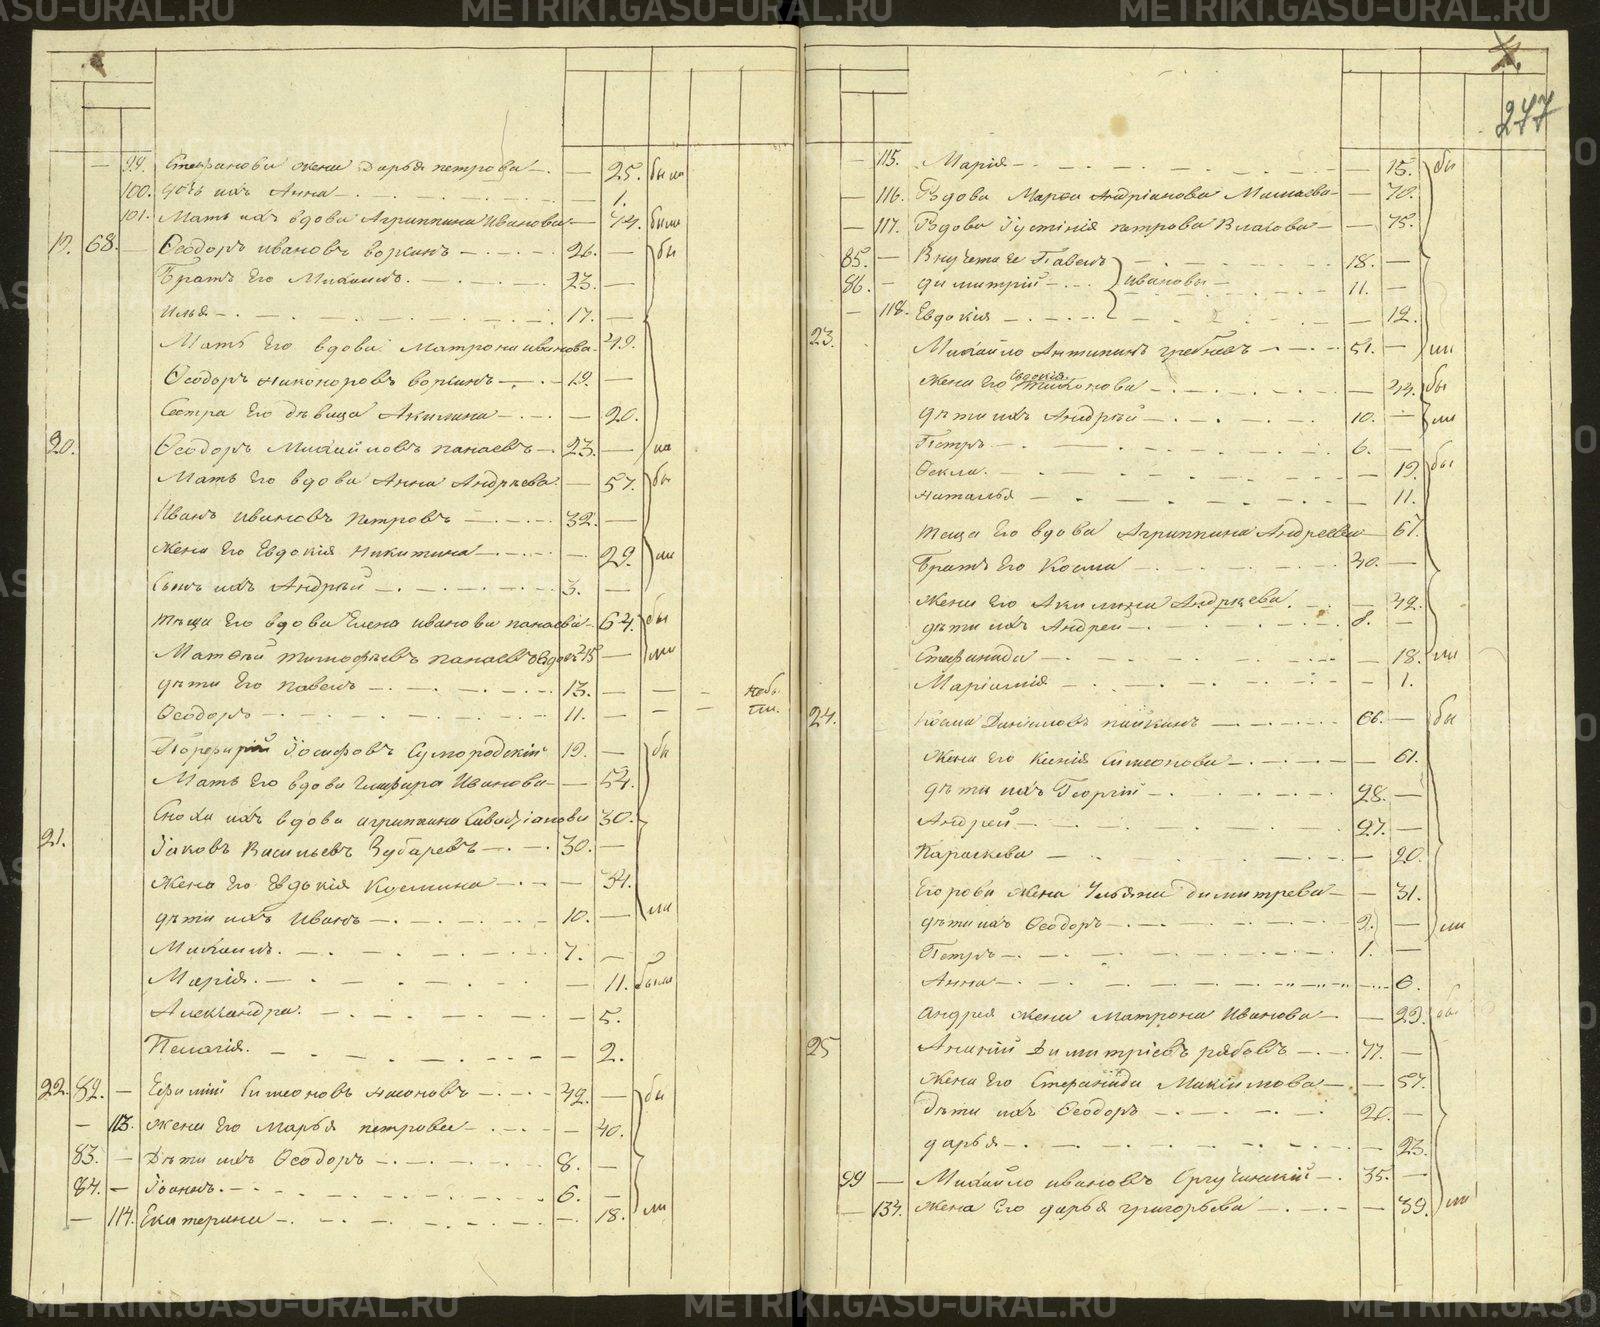 METRIKI.GASO-URAL.RU
277
99. Стефанова жена Дарья петрова 25. была
100. дочь ихъ Анна 1.
101. Мать ихъ вдова Агриппина Иванова 74. была
19. 68. Ѳеодоръ ивановъ 26. бы
Братъ Его Михаилъ 23.
Илья 17.
Мать Его вдова Матрона иванова 49.
Ѳеодоръ никоноровъ 19.
Сестра Его дѣвица Акилина 20.
20. Ѳеодоръ Михайловъ панаевъ 23.
Мать Его вдова Анна Андреева 57. бы
Иванъ ивановъ петровъ 32.
жена Его Евдокия Никитина 29. ли
Сынъ ихъ Андрѣй 3.
тѣща Его вдова Елена иванова панаева 64. бы
Матѳей тимофѣевъ панаевъ вдовъ 45 ли
дѣти Его павелъ 13. не бы
Ѳеодоръ 11. ли.
Порфирій Іосифовъ Сумородскій 19. бы
Мать Его вдова Глафира Иванова 54.
Сноха ихъ вдова агрипина 30.
21. Іаковъ Васильевъ Зубаревъ 30.
жена Его Евдокія Козмина 34.
дѣти ихъ Иванъ 10. ли
Михаилъ. 7.
Марія. 11. были
Александра. 5.
Пелагія. 2.
22. 82. Ефимій Симеоновъ 42. бы
113. жена Его Марья петрова 40.
83. Дѣти ихъ Ѳеодоръ 8.
84. Іоаннъ. 6.
114. Екатерина 18. ли
115. Марія 15. бы
116. Вдова Марѳа Андріанова 72.
117. Вдова Іустинія петрова Власова 75.
85. Внучета ее Павелъ 18.
86. димитрій ивановы 11.
118. Евдокия 12.
23. Михайло Антипинъ гребневъ 51. ли
жена Его Евдокія 44. бы
дѣти ихъ Андрѣй 10. ли
Петръ 6.
Ѳекла. 19. бы
наталья 11.
теща Его вдова Агриппина Андреева 67.
Братъ Его Косма 40.
жена Его Акилина Андреева 42.
дѣти ихъ Андреи 8.
Стефанида 18. ли
Маріамія 1.
24. Косма Даниловъ 66. бы
жена Его Ксенія Симеонова 61.
дѣти ихъ Георгій 28.
Андрей 27.
Параскева 20.
Егорова жена Ульяна димитрева 31.
дѣти ихъ Ѳеодоръ 2. ли
Петръ 1.
Анна 6.
андрея жена Матрона Иванова 29. бы
25 Ананій Димитріевъ рябовъ 77.
жена Его Стефанида Максимова 57.
Дѣти ихъ Ѳеодоръ 20.
дарья 23.
99 Михайло ивановъ 35.
134. жена Его дарья григорьева 39. ли